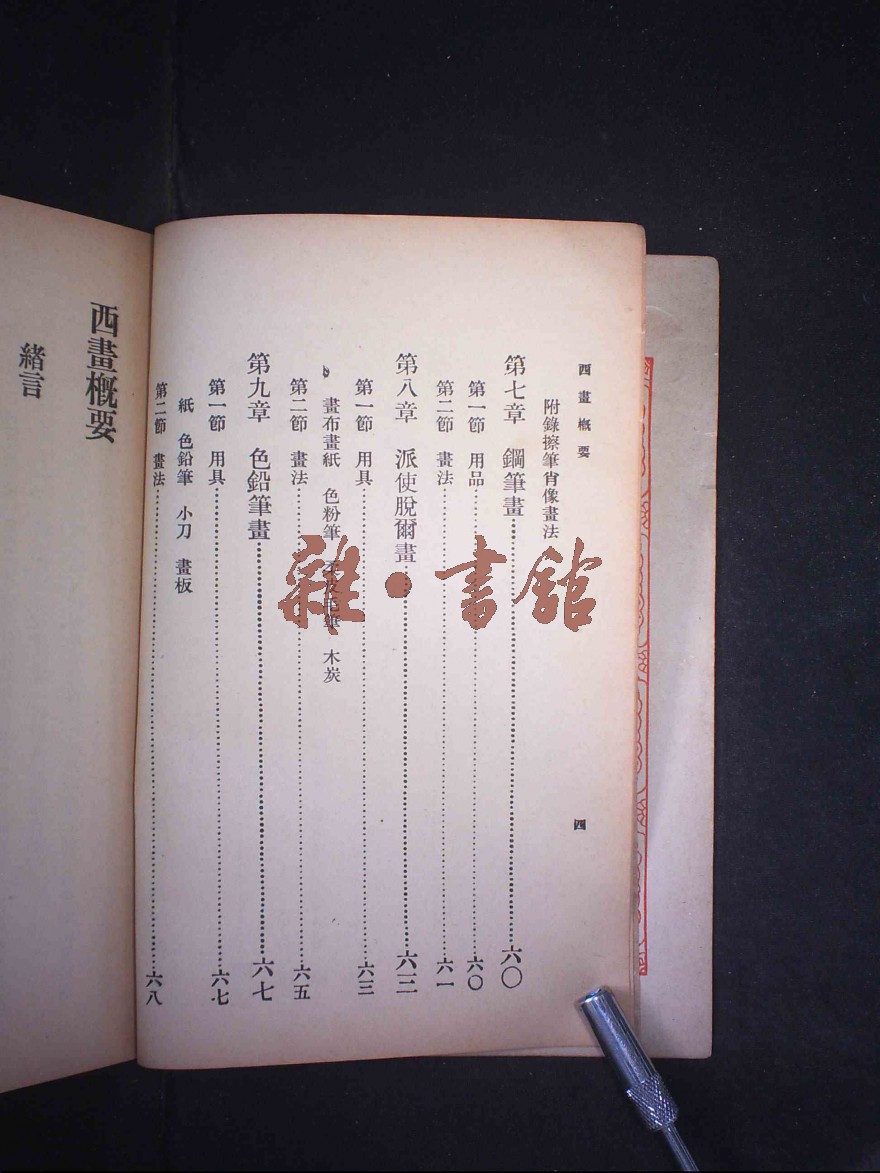 西畫槪要
四
附錄擦筆肖像畫法
第七章 鋼筆畫……六〇
第一節 用品……六〇
第二節 畫法……六一
第八章 派使脫爾畫……六三
第一節 用具……六三
畫布畫紙 色粉筆 木炭
第二節 畫法……六五
第九章 色鉛筆畫……六七
第一節 用具……六七
紙 色鉛筆 小刀 畫板
第二節 畫法……六八
西畫槪要
緒言
雜·書館